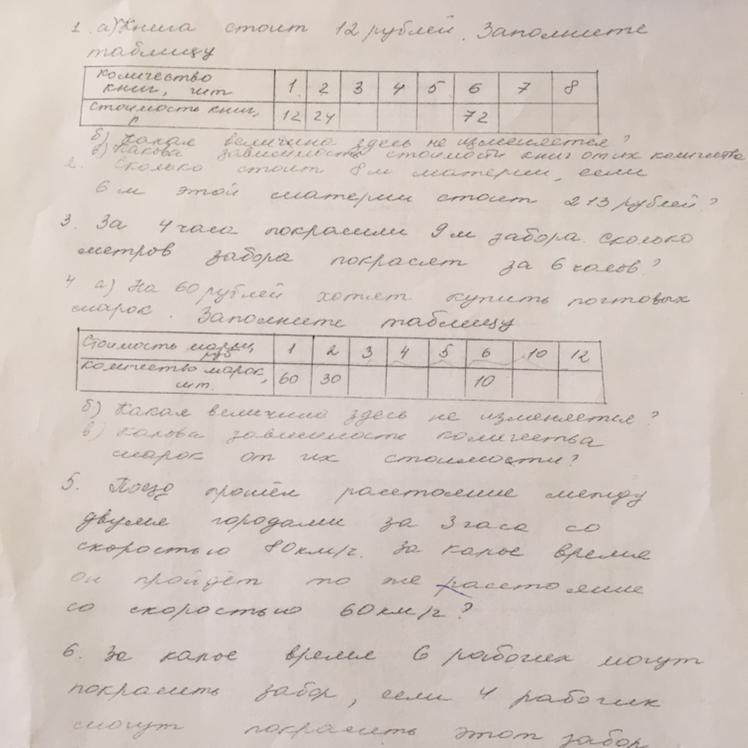 1. а) Книга стоит 12 рублей. Заполните
таблицу
количество книг, шт 1 2 3 4 5 6 7 8
стоимость книг, р 12 24 72
б) Какая величина здесь не изменяется?
в) Какова зависимость стоимости книг от их количества
2. Сколько стоит 8 м материи, если
6 м этой материи стоит 213 рублей?
3. За 4 часа покрасили 9 м забора. Сколько
метров забора покрасят за 6 часов?
4. а) На 60 рублей хотят купить почтовых
марок. Заполните таблицу
Стоимость марки, руб 1 2 3 4 5 6 10 12
количество марок, шт. 60 30 10
б) Какая величина здесь не изменяется?
в) Какова зависимость количества
марок от их стоимости?
5. прошёл расстояние между
двумя городами за 3 часа со
скоростью 80 км/ч. За какое время
он пройдёт то же расстояние
со скоростью 60 км/ч?
6. За какое время 6 рабочих могут
покрасить забор, если 4 рабочих
могут покрасить этот забор